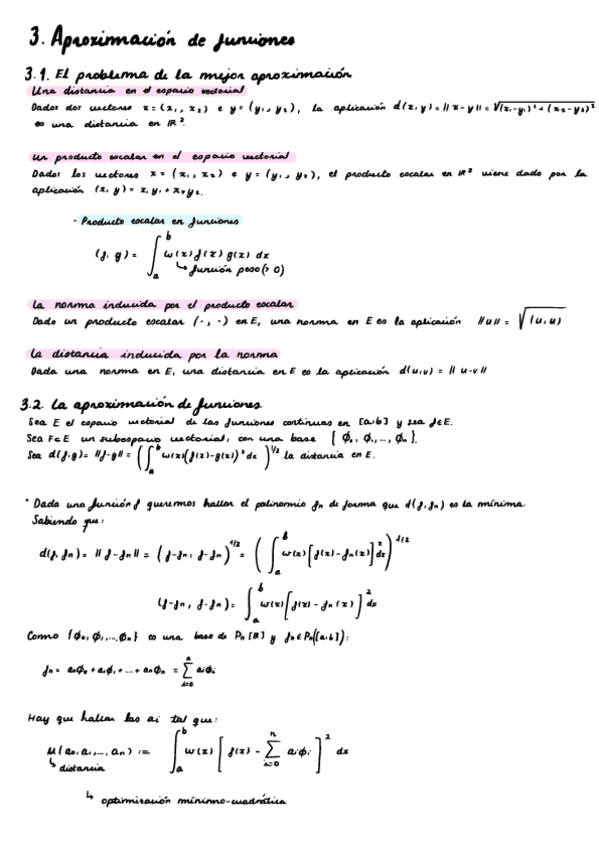 3. Aproximación de funciones
3.1. El problema de la mejor aproximación
Una distancia en el espacio vectorial
Dados dos vectores x = (x₁, x₂) e y = (y₁, y₂), la aplicación d(x,y) = ||x-y|| = √(x₁-y₁)² + (x₂-y₂)²
es una distancia en ℝ².
Un producto escalar en el espacio vectorial
Dados los vectores x = (x₁, x₂) e y = (y₁, y₂), el producto escalar en ℝ² viene dado por la
aplicación (x, y) = x₁y₁ + x₂y₂.
- Producto escalar en funciones
(f, g) = ∫ₐᵇ ω(x) f(x) g(x) dx
↳ función peso (> 0)
La norma inducida por el producto escalar
Dado un producto escalar (·, ·) en E, una norma en E es la aplicación ||u|| = √(u, u)
La distancia inducida por la norma
Dada una norma en E, una distancia en E es la aplicación d(u,v) = ||u-v||
3.2. La aproximación de funciones
Sea E el espacio vectorial de las funciones continuas en [a,b] y sea f∈E.
Sea F⊂E un subespacio vectorial, con una base {ϕ₀, ϕ₁, ..., ϕₙ}.
Sea d(f,g) = ||f-g|| = (∫ₐᵇ ω(x)(f(x)-g(x))² dx)^1/2 la distancia en E.
* Dada una función f queremos hallar el polinomio fₙ de forma que d(f, fₙ) es la mínima.
Sabiendo que:
d(f, fₙ) = ||f-fₙ|| = (f-fₙ, f-fₙ)^1/2 = (∫ₐᵇ ω(x) [f(x)-fₙ(x)]² dx)^1/2
(f-fₙ, f-fₙ) = ∫ₐᵇ ω(x) [f(x) - fₙ(x)]² dx
Como {ϕ₀, ϕ₁, ..., ϕₙ} es una base de Pₙ[ℝ] y fₙ ∈ Pₙ([a,b]):
fₙ = a₀ϕ₀ + a₁ϕ₁ + ... + aₙϕₙ = ∑ᵢ₌₀ⁿ aᵢϕᵢ
Hay que hallar las aᵢ tal que:
M(a₀, a₁, ..., aₙ) := ∫ₐᵇ ω(x) [f(x) - ∑ᵢ₌₀ⁿ aᵢϕᵢ]² dx
↳ distancia
↳ optimización mínimo-cuadrática